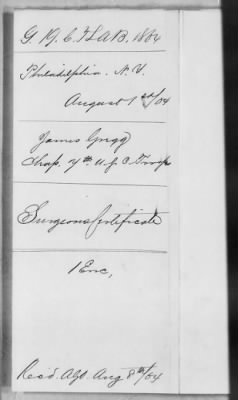 G 19. C.T. & A.B. 1864
Philadelphia. N.Y.
August 1st/64
James Gregg
Chap. 7th U.S.C. Troops
Surgeons Certificate
1 Enc,
Rec'd. A.G.O. Aug 8th/64